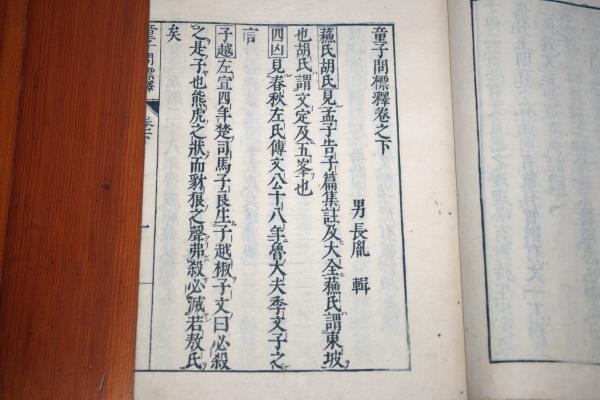 童子問標釋卷之下
男長胤 輯
蘓氏胡氏見孟子告子篇集註及大全蘓氏謂東坡
也胡氏謂文定及五峯也
四凶見春秋左氏傳文公十八年魯大夫季文子之
言
子越左宣四年楚司馬子良生子越椒子文曰必殺
之是子也熊虎之狀而豺狼之聲弗殺必滅若敖氏
矣
童子問標釋 卷之下 一